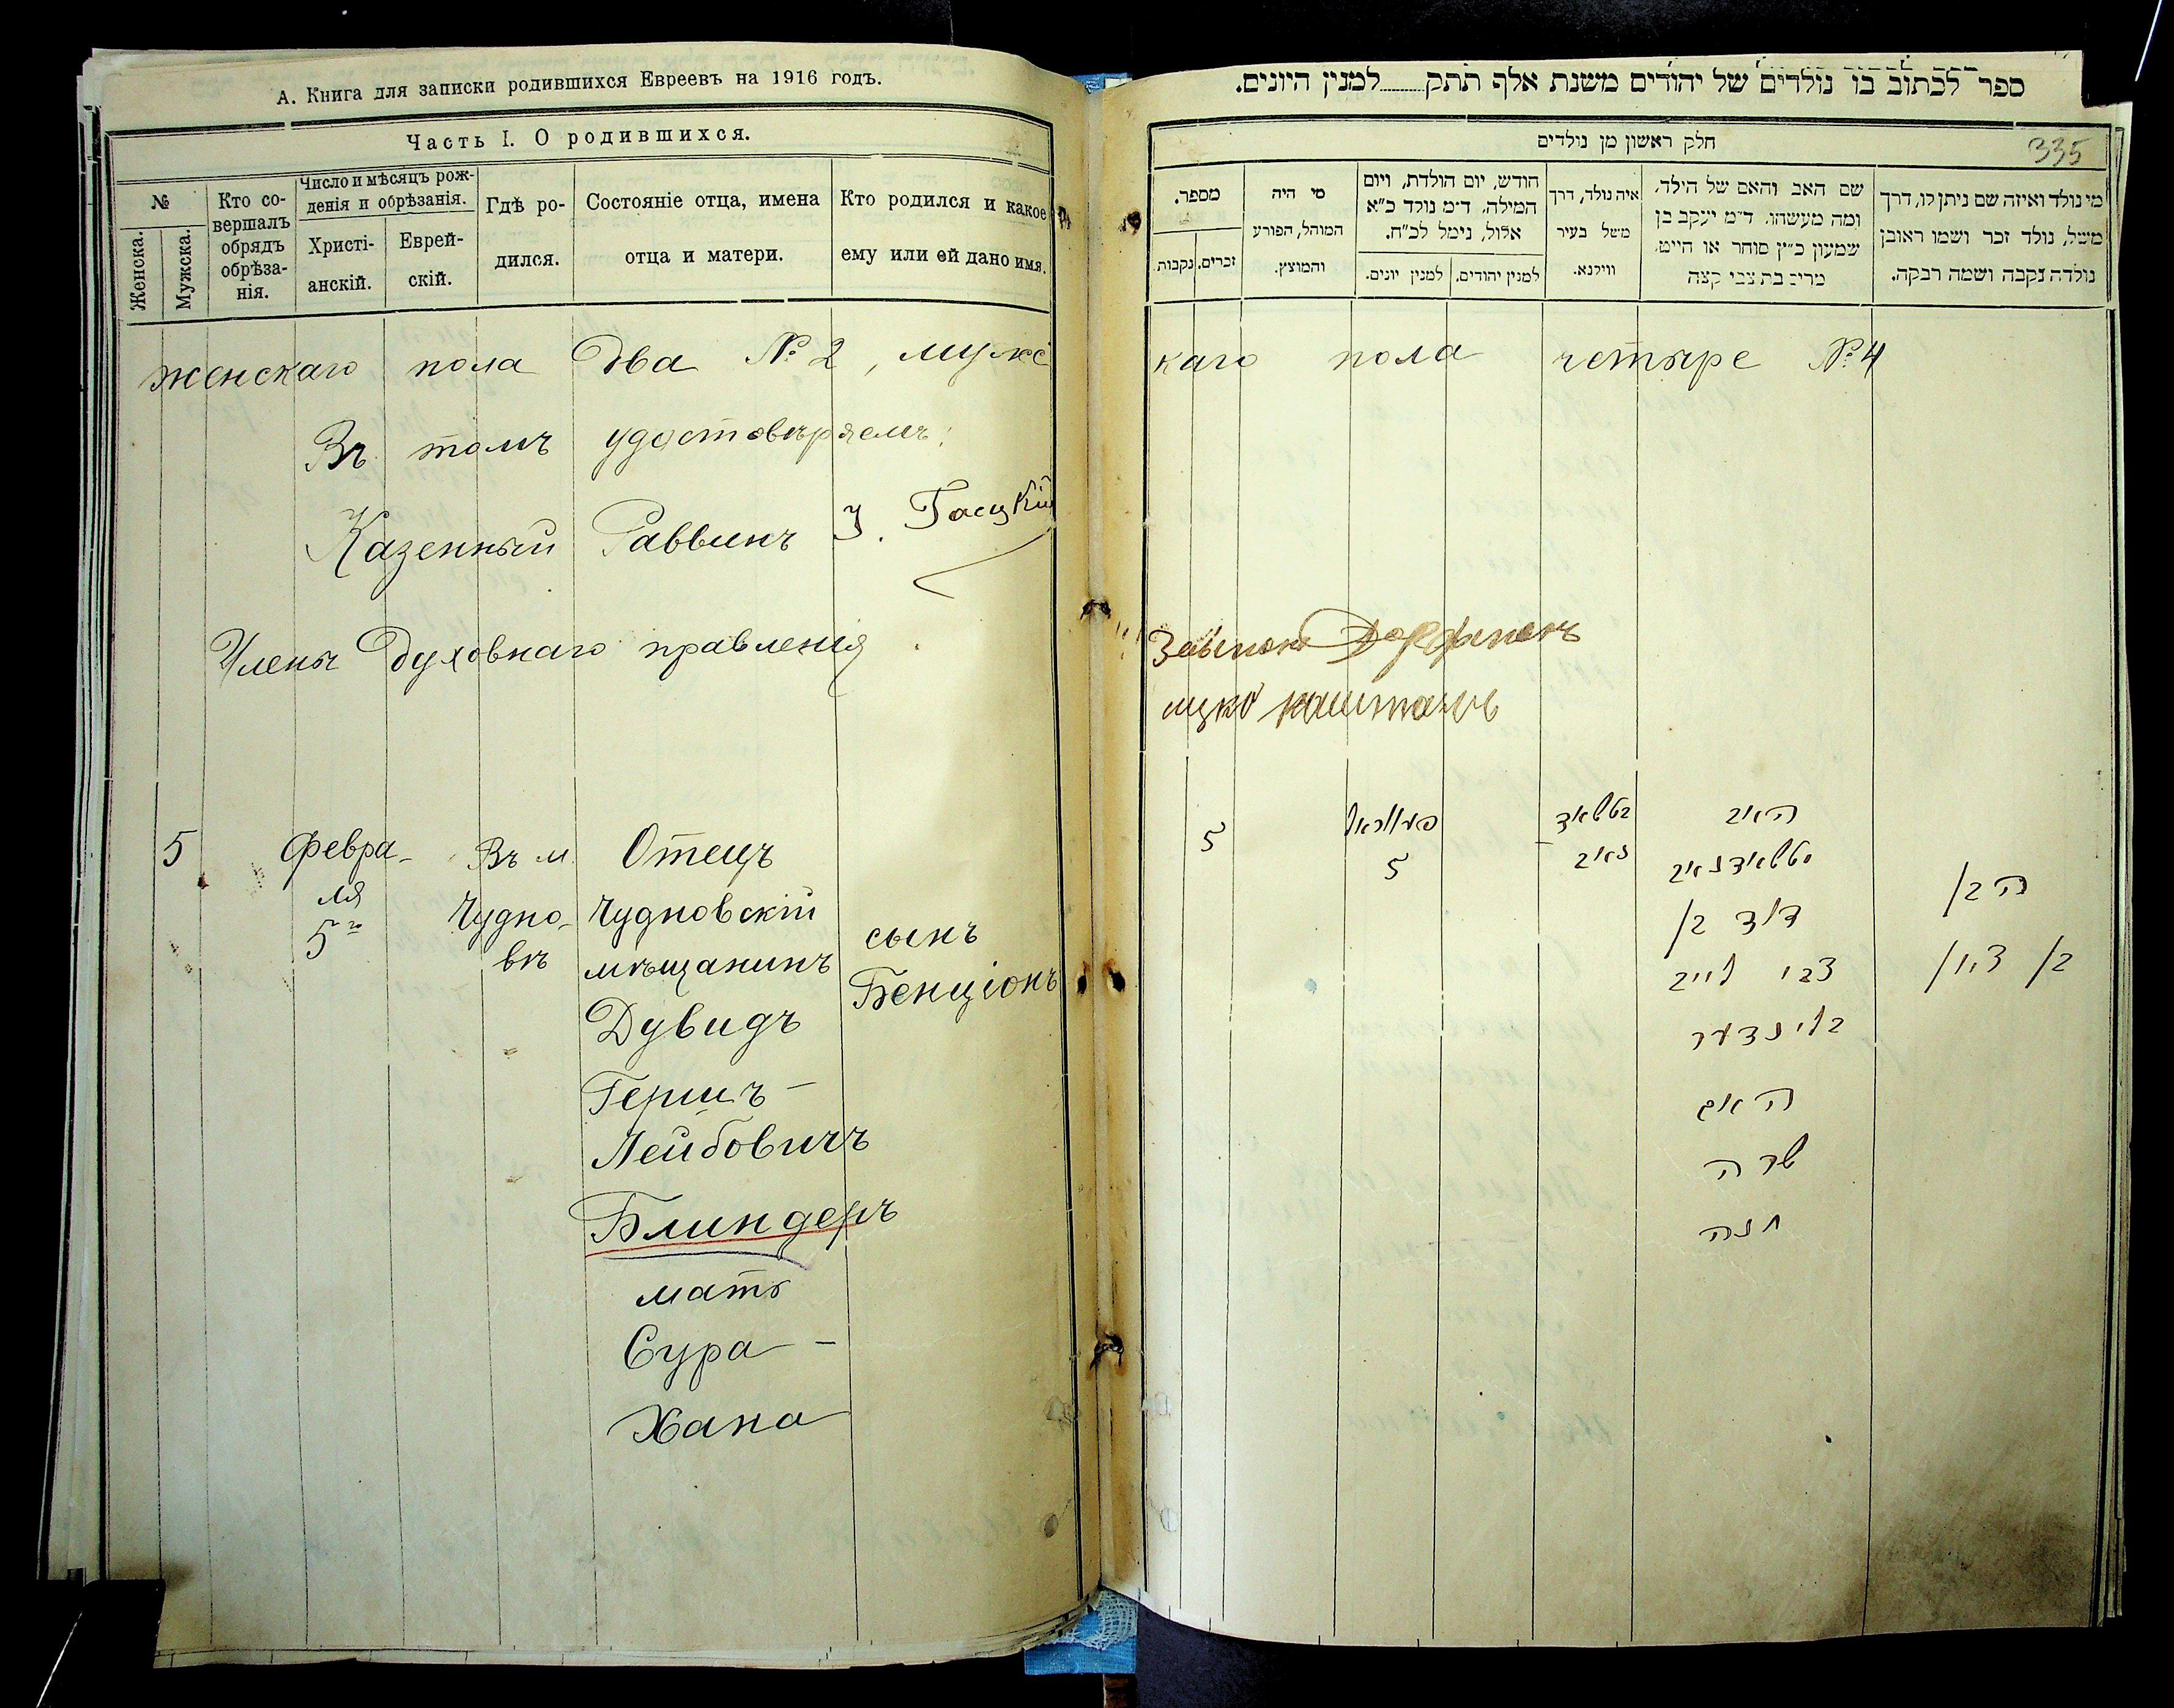 А. Книга для записки родившихся Евреевъ на 1916 годъ.
Часть I. О родившихся.
№
Женска.
Мужска.
Кто со-
вершалъ
обрядъ
обрѣза-
нія.
Число и мѣсяцъ рож-
денія и обрѣзанія.
Христі-
анскій.
Еврей-
скій.
Гдѣ ро-
дился.
Состояніе отца, имена
отца и матери.
Кто родился и какое
ему или ей дано имя.
женскаго пола два № 2, мужс
Въ томъ удостовѣряемъ:
Казенный Раввинъ
Члены духовнаго правленія
5
Февра-
ля
5го
Въ м.
Чудно-
вѣ
Отецъ
Чудновскій
мѣщанинъ
Дувидъ
Гершъ-
Лейбовичъ
Блиндеръ
мать
Сура-
Хана
сынъ
Бенціонъ
ספר לכתוב בו נולדים של יהודים משנת אלף תתק למנין היונים.
חלק ראשון מן נולדים
335
מספר.
זכרים.
נקבות.
מי היה
המוהל, הפורע
והמוצץ.
חודש, יום הולדת, ויום
המילה. ד״מ נולד כ״א
אלול, נימל לכ״ח.
למנין יהודים.
למנין יונים.
איה נולד, דרך
משל בעיר
ווילנא.
שם האב והאם של הילד.
ומה מעשהו. ד״מ יעקב בן
שמעון כ״ץ סוחר או חייט.
מרים בת צבי קצה
מי נולד ואיזה שם ניתן לו, דרך
משל, נולד זכר ושמו ראובן
נולדה נקבה ושמה רבקה.
каго пола четыре № 4
5
5
האב
דוד בן
צבי לייב
בלינדער
האם
שרה
חנה
הבן
בן ציון